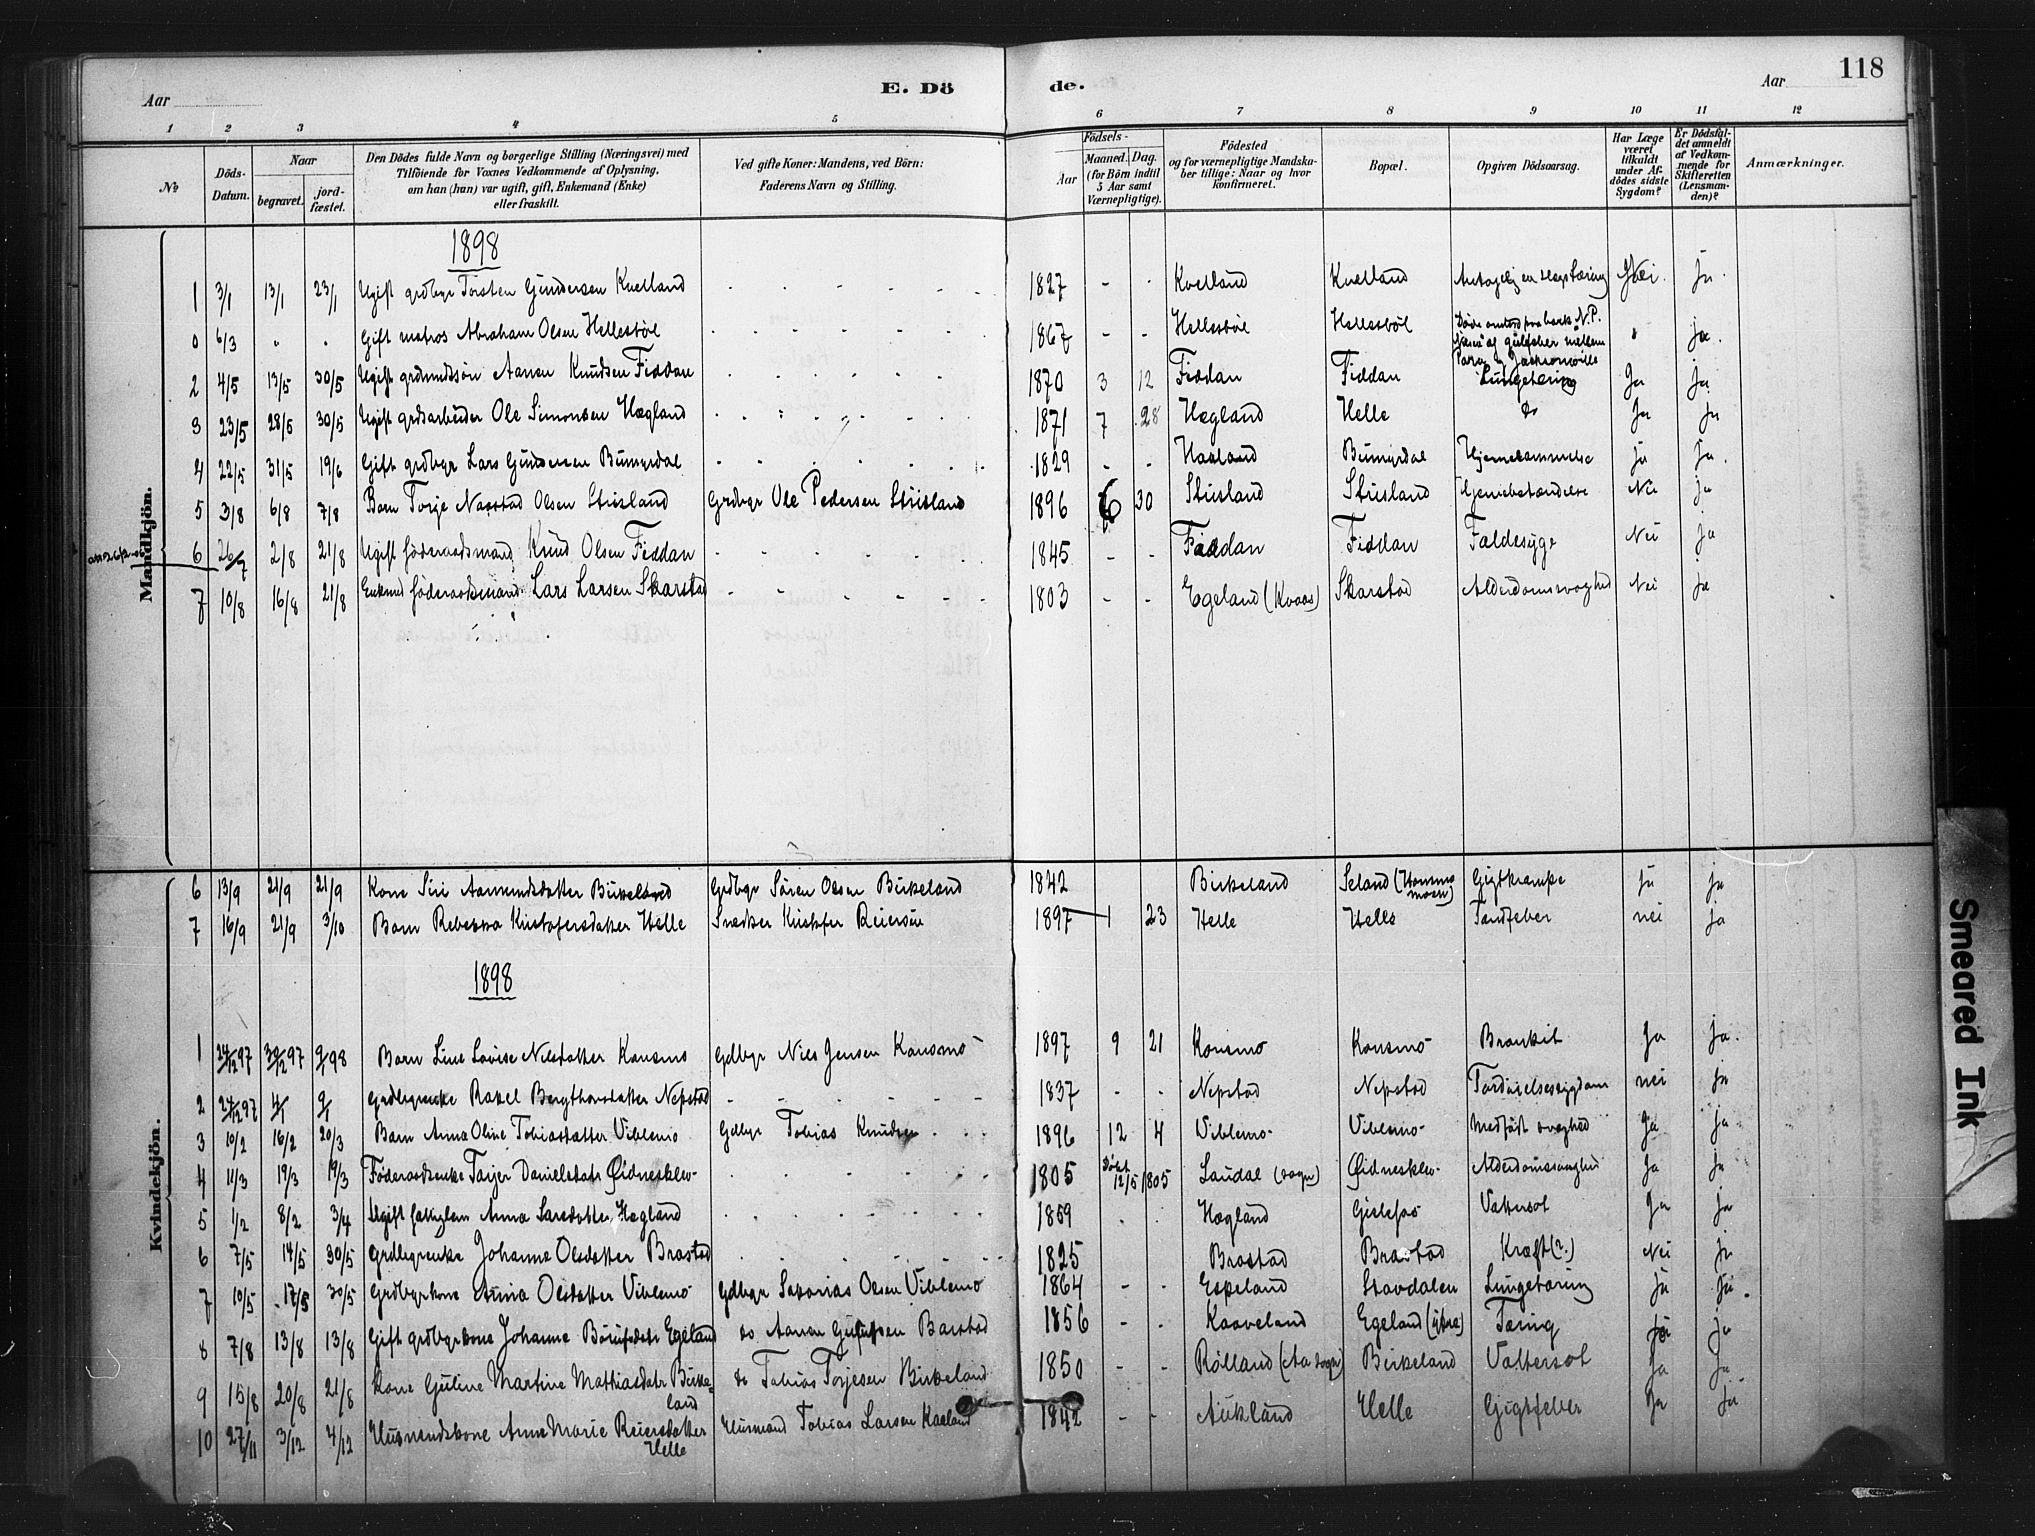 118
Aar
E. Dö
de.
Aar
1 2 3 4 5 6 7 8 9 10 11 12
No
Döds-Datum.
Naar
begravet.
jord-fæstet.
Den Dödes fulde Navn og borgerlige Stilling (Næringsvei) med
Tilföiende for Voxnes Vedkommende af Oplysning,
om han (hun) var ugift, gift, Enkemand (Enke)
eller fraskilt.
Ved gifte Koner: Mandens, ved Börn:
Faderens Navn og Stilling.
Födsels-
Aar
Maaned. Dag.
(for Börn indtil
5 Aar samt
Værnepligtige).
Födested
og for værnepligtige Mandska-
ber tillige: Naar og hvor
konfirmeret.
Bopæl.
Opgiven Dödsaarsag.
Har Læge
været
tilkaldt
under Af-
dödes sidste
Sygdom?
Er Dödsfal-
det anmeldt
af Vedkom-
mende for
Skifteretten
(Lensman-
den)?
Anmærkninger.
Mandkjön.
1898
1 3/1 13/1 23/1 Ugift grdbgr Torsten Gundersen Kvelland - 1827 - - Kvelland Kvelland Nei. ja.
0 6/3 " " Gift matros Abraham Olsen Hellesböl 1867 - - Hellesböl Hellesböl Döde ombord paa bark "N.P. gulfeber mellem Para og Jacksonville " ja.
2 4/5 13/5 30/5 Ugift grdmandssön Aanen Knudsen Fiddan 1870 3 12 Fiddan Fiddan Lungetæring Ja ja
3 23/5 28/5 30/5 Ugift grdsarbeider Ole Simonsen Hægland 1871 7 28 Hægland Helle do Ja ja
4 22/5 31/5 19/6 Gift grdbgr Lars Gundersen 1829 - - Haaland Hjernebetændelse ja ja.
5 3/8 6/8 7/8 Barn Torje Naostad Olsen Stusland Grdbgr Ole Pedersen Stusland 1896 6 30 Stusland Stusland Hjernebetændelse Nei ja
6 26/7 2/8 21/8 Ugift föderaadsmand Knud Olsen Fiddan 1845 - - Fiddan Fiddan Faldesyge Nei ja
7 10/8 16/8 21/8 Enkmd föderaadsmand Lars Larsen Skarstad 1803 - - Egeland (Kvaas) Skarstad Alderdomssvaghed Nei ja
Kvindekjön.
6 13/9 21/9 21/9 Kone Siri Aamundsdatter Birkeland Grdbgr Sören Olsen Birkeland 1842 Birkeland Seland (Konsmo moen) Gigtkrampe ja ja
7 16/9 21/9 3/10 Barn Rebekka Kristofersdatter Helle Snedker Kristofer Reiersen 1897 1 23 Helle Helle Tandfeber nei ja
1898
1 24/12 97 30/12 97 9/1 98 Barn Line Lovise Nilsdatter Konsmo Gdbgr Nils Jensen Konsmo 1897 9 21 Konsmo Konsmo Bronkit Ja ja.
2 24/12 97 4/1 9/1 Grdbgrenke Rakel Bergthorsdatter Nepstad 1837 - - Nepstad Nepstad nei ja
3 10/2 16/2 20/3 Barn Anna Oline Tobiasdatter Viblemo Gdbgr Tobias Knudsen 1896 12 4 Viblemo Viblemo Medfödt svaghed Ja ja
4 11/3 19/3 19/3 Föderaadsenke Tarjer Danielsdatr Øidnesklev 1805 Döbt 12/5 1805 Laudal (sogn) Øidnesklev Alderdomssvaghed Ja ja
5 1/2 8/2 3/4 Ugift fattiglem Anna Larsdatter Hægland 1859 Hægland Gislefos Vattersot Ja ja
6 7/5 14/5 30/5 Grdbgrenke Johanna Olsdatter Brastad 1825 Brastad Brastad Kræft (?) Nei ja
7 10/5 17/5 30/5 Grdbgrkone Anna Olsdatter Viblemo Gdbgr Sakarias Olsen Viblemo 1864 - - Espeland Stavdalen Lungetæring ja ja
8 7/8 13/8 13/8 Gift grdbgrkone Johanne Egeland do Aanen Barstad 1856 - - Kaaveland Egeland (ytre) Tæring ja ja
9 15/8 20/8 21/8 Kone Guline Martine Mathiasdatr Birkeland do Tobias Torjesen Birkeland 1850 - - Rølland (Aa sogn) Birkeland Vattersot Ja ja
10 27/11 3/12 4/12 Husmandskone Anne Marie Reiersdatter Helle Husmand Tobias Larsen 1842 - - Aukland Helle Gigtfeber Ja ja
Smeared Ink